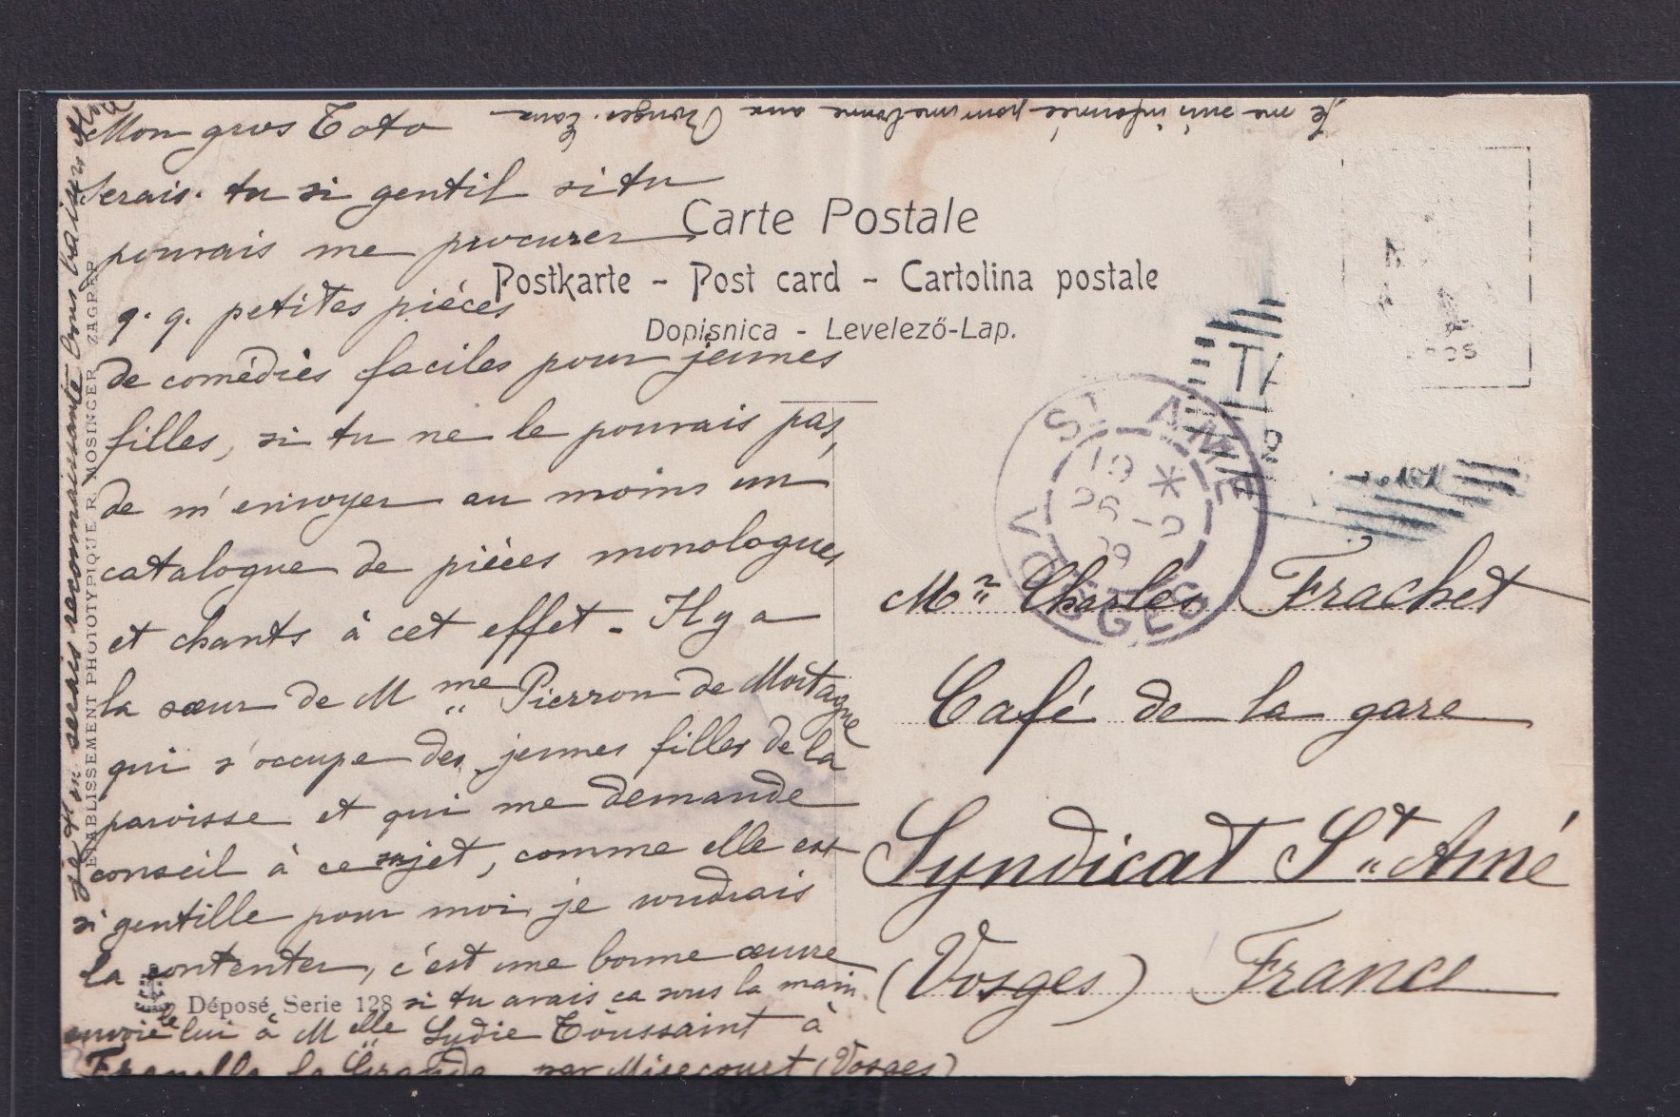 Mon gros Toto
Serais-tu si gentil si tu
pourrais me procurer
q. q. petites pièces
de comédies faciles pour jeunes
filles, si tu ne le pourrais pas,
de m'envoyer au moins un
catalogue de pièces monologues
et chants à cet effet - Il y a
la sœur de Mme Pierron de Mortagne
qui s'occupe des jeunes filles de la
paroisse et qui me demande
conseil à ce sujet, comme elle est
si gentille pour moi, je voudrais
la contenter, c'est une bonne œuvre
si tu avais ca sous la main
envoie le lui à Melle Lydie Toussaint à
Frenelle la Grande par Mirecourt (Vosges)
je t'en serais reconnaissante bons baisers
Je me suis informée pour une bonne aux
Carte Postale
Postkarte - Post card - Cartolina postale
Dopisnica - Levelező-Lap.
ST AMÉ
VOSGES
Mr Charles Frachet
Café de la gare
Syndicat St Amé
(Vosges) France
ETABLISSEMENT PHOTOTYPIQUE R. MOSINGER ZAGREB
Déposé Serie 128